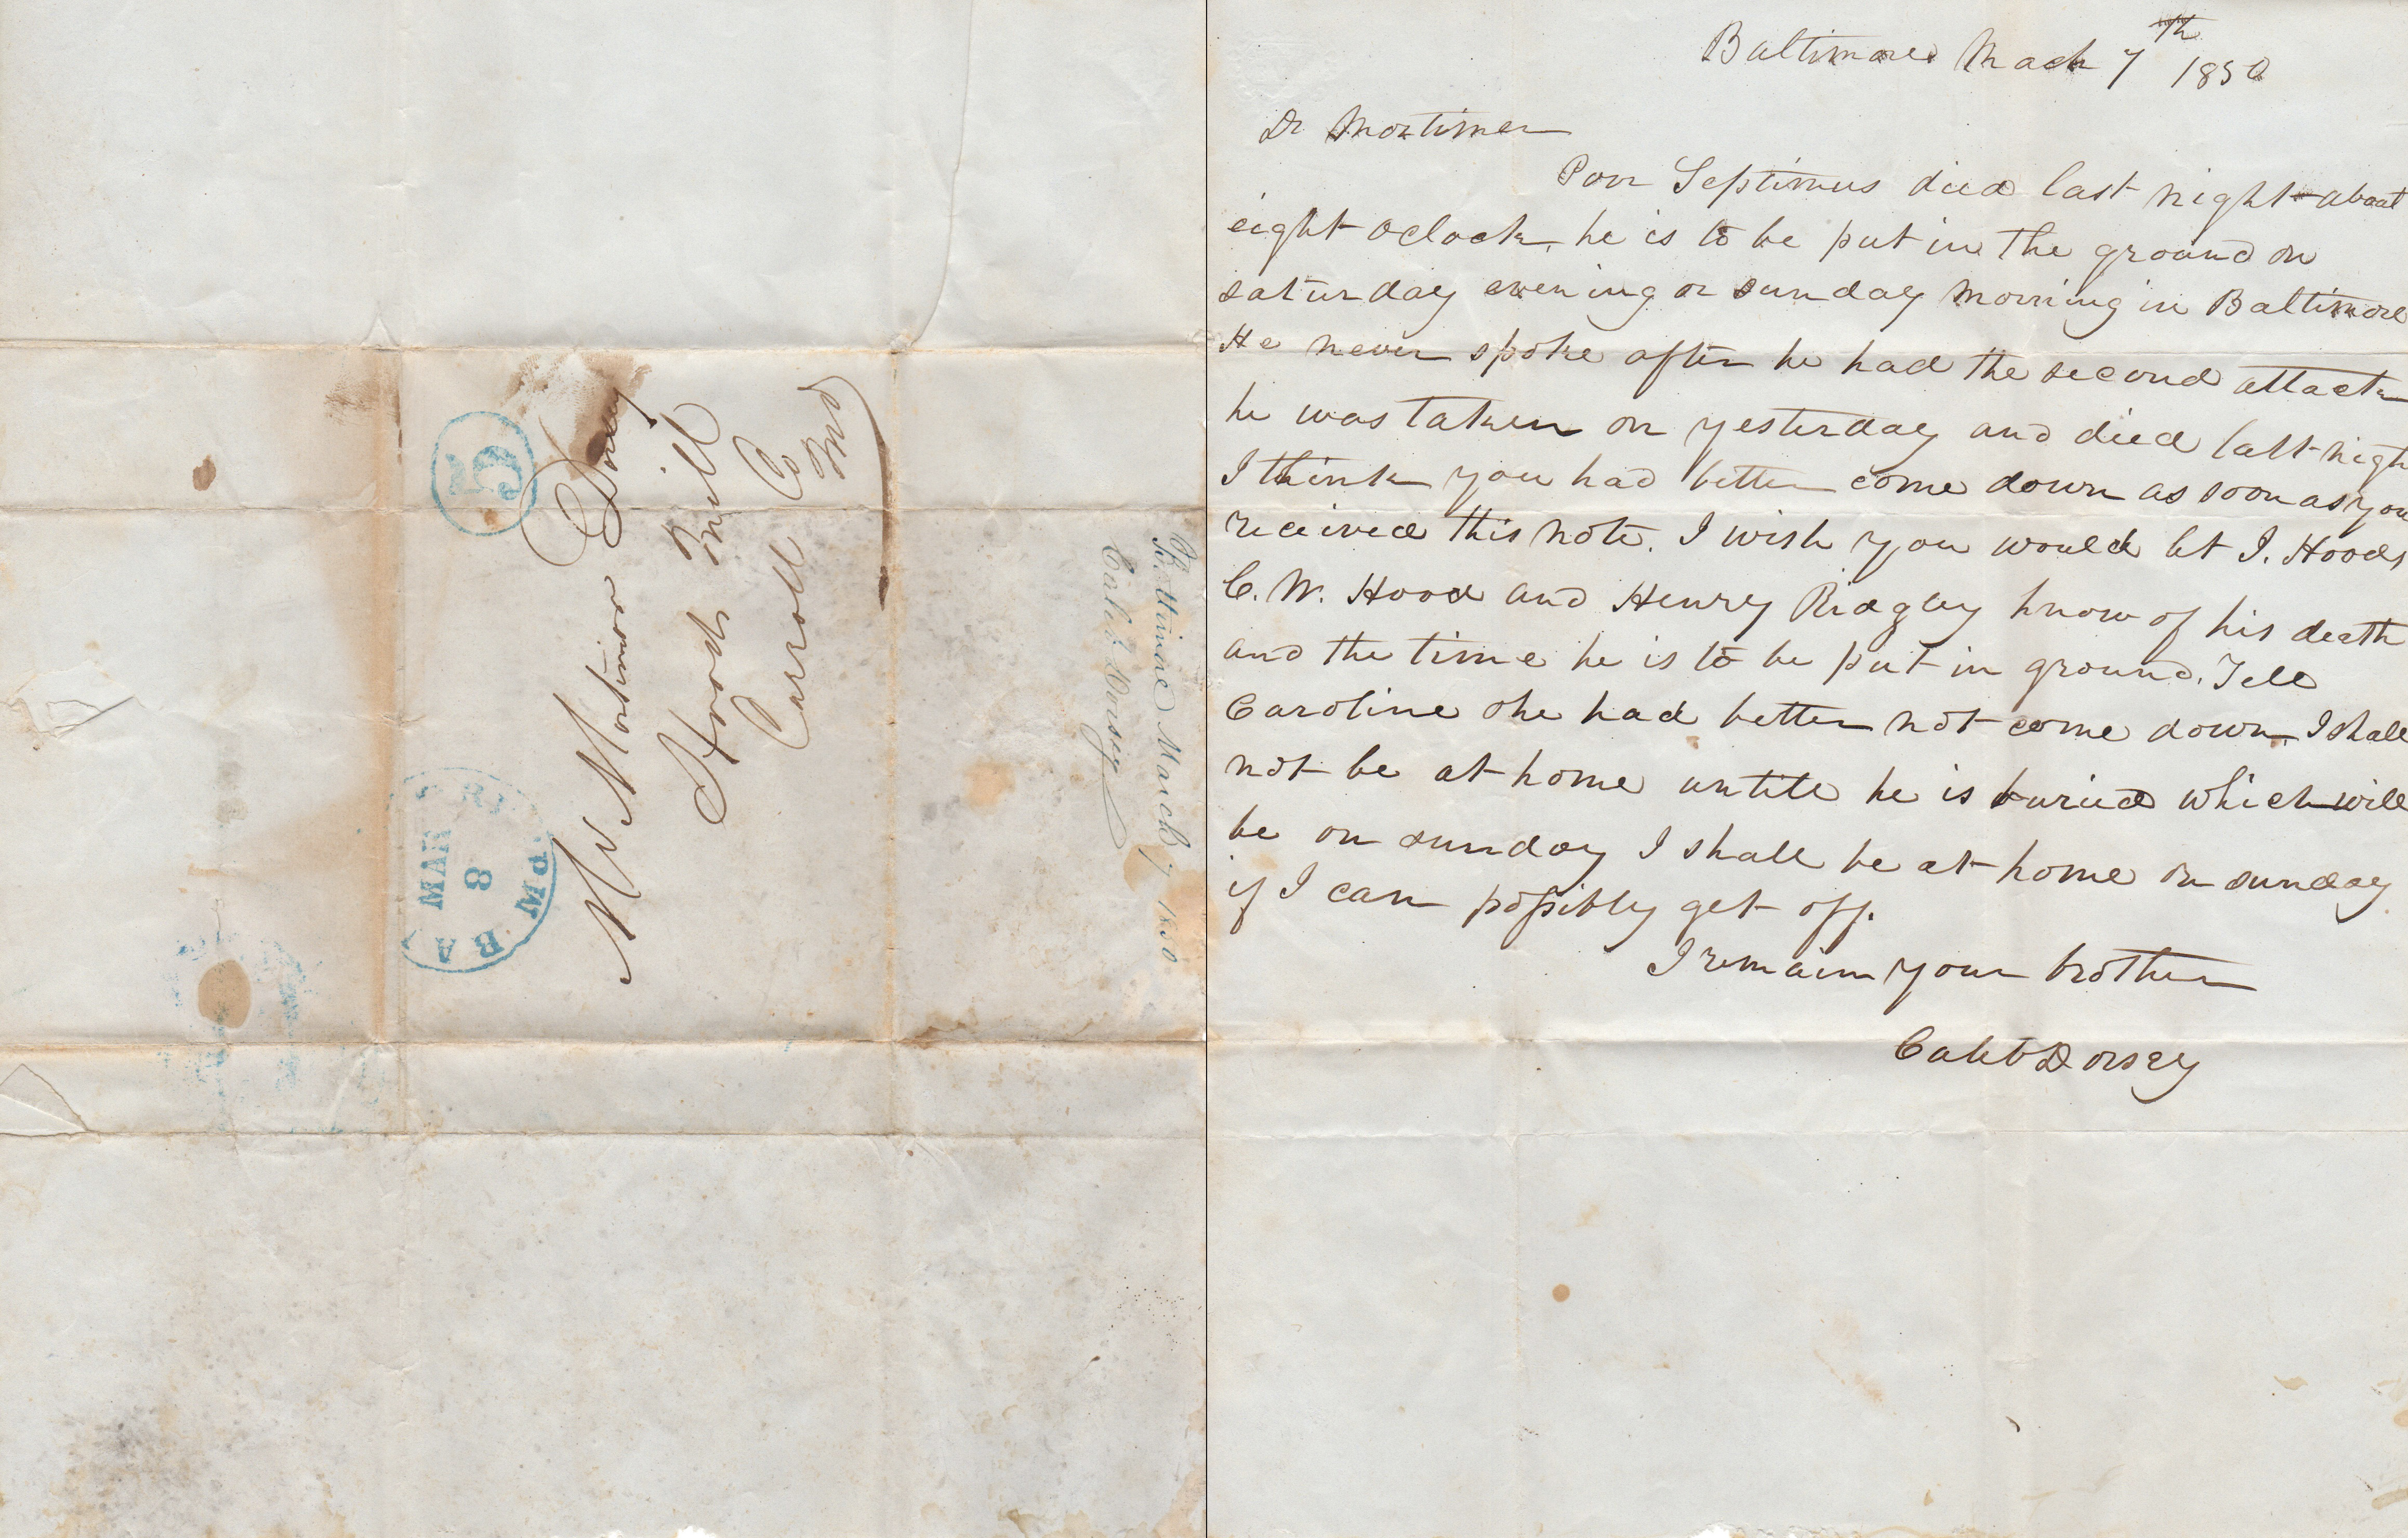 5
MAR
8
PM
BA
Mr Mortimor Dorsey
Hoods Mill
Carroll Co
Md
Baltimore March 7 1850
Caleb Dorsey
Baltimore Mach 7th 1850
Dr Mortimer
Poor Septimus died last night about
eight oclock, he is to be put in the ground on
saturday evening or sunday morning in Baltimore
He never spoke after he had the second attack
he was taken on yesterday and died last nigh
I think you had better come down as soon as you
received this note. I wish you would let I. Hoods
C. W. Hood and Henry Ridgley know of his death
and the time he is to be put in ground. Tell
Caroline she had better not come down. I shall
not be at home untill he is buried which will
be on sunday I shall be at home on sunday
if I can possibly get off.
I remain your brother
Caleb Dorsey